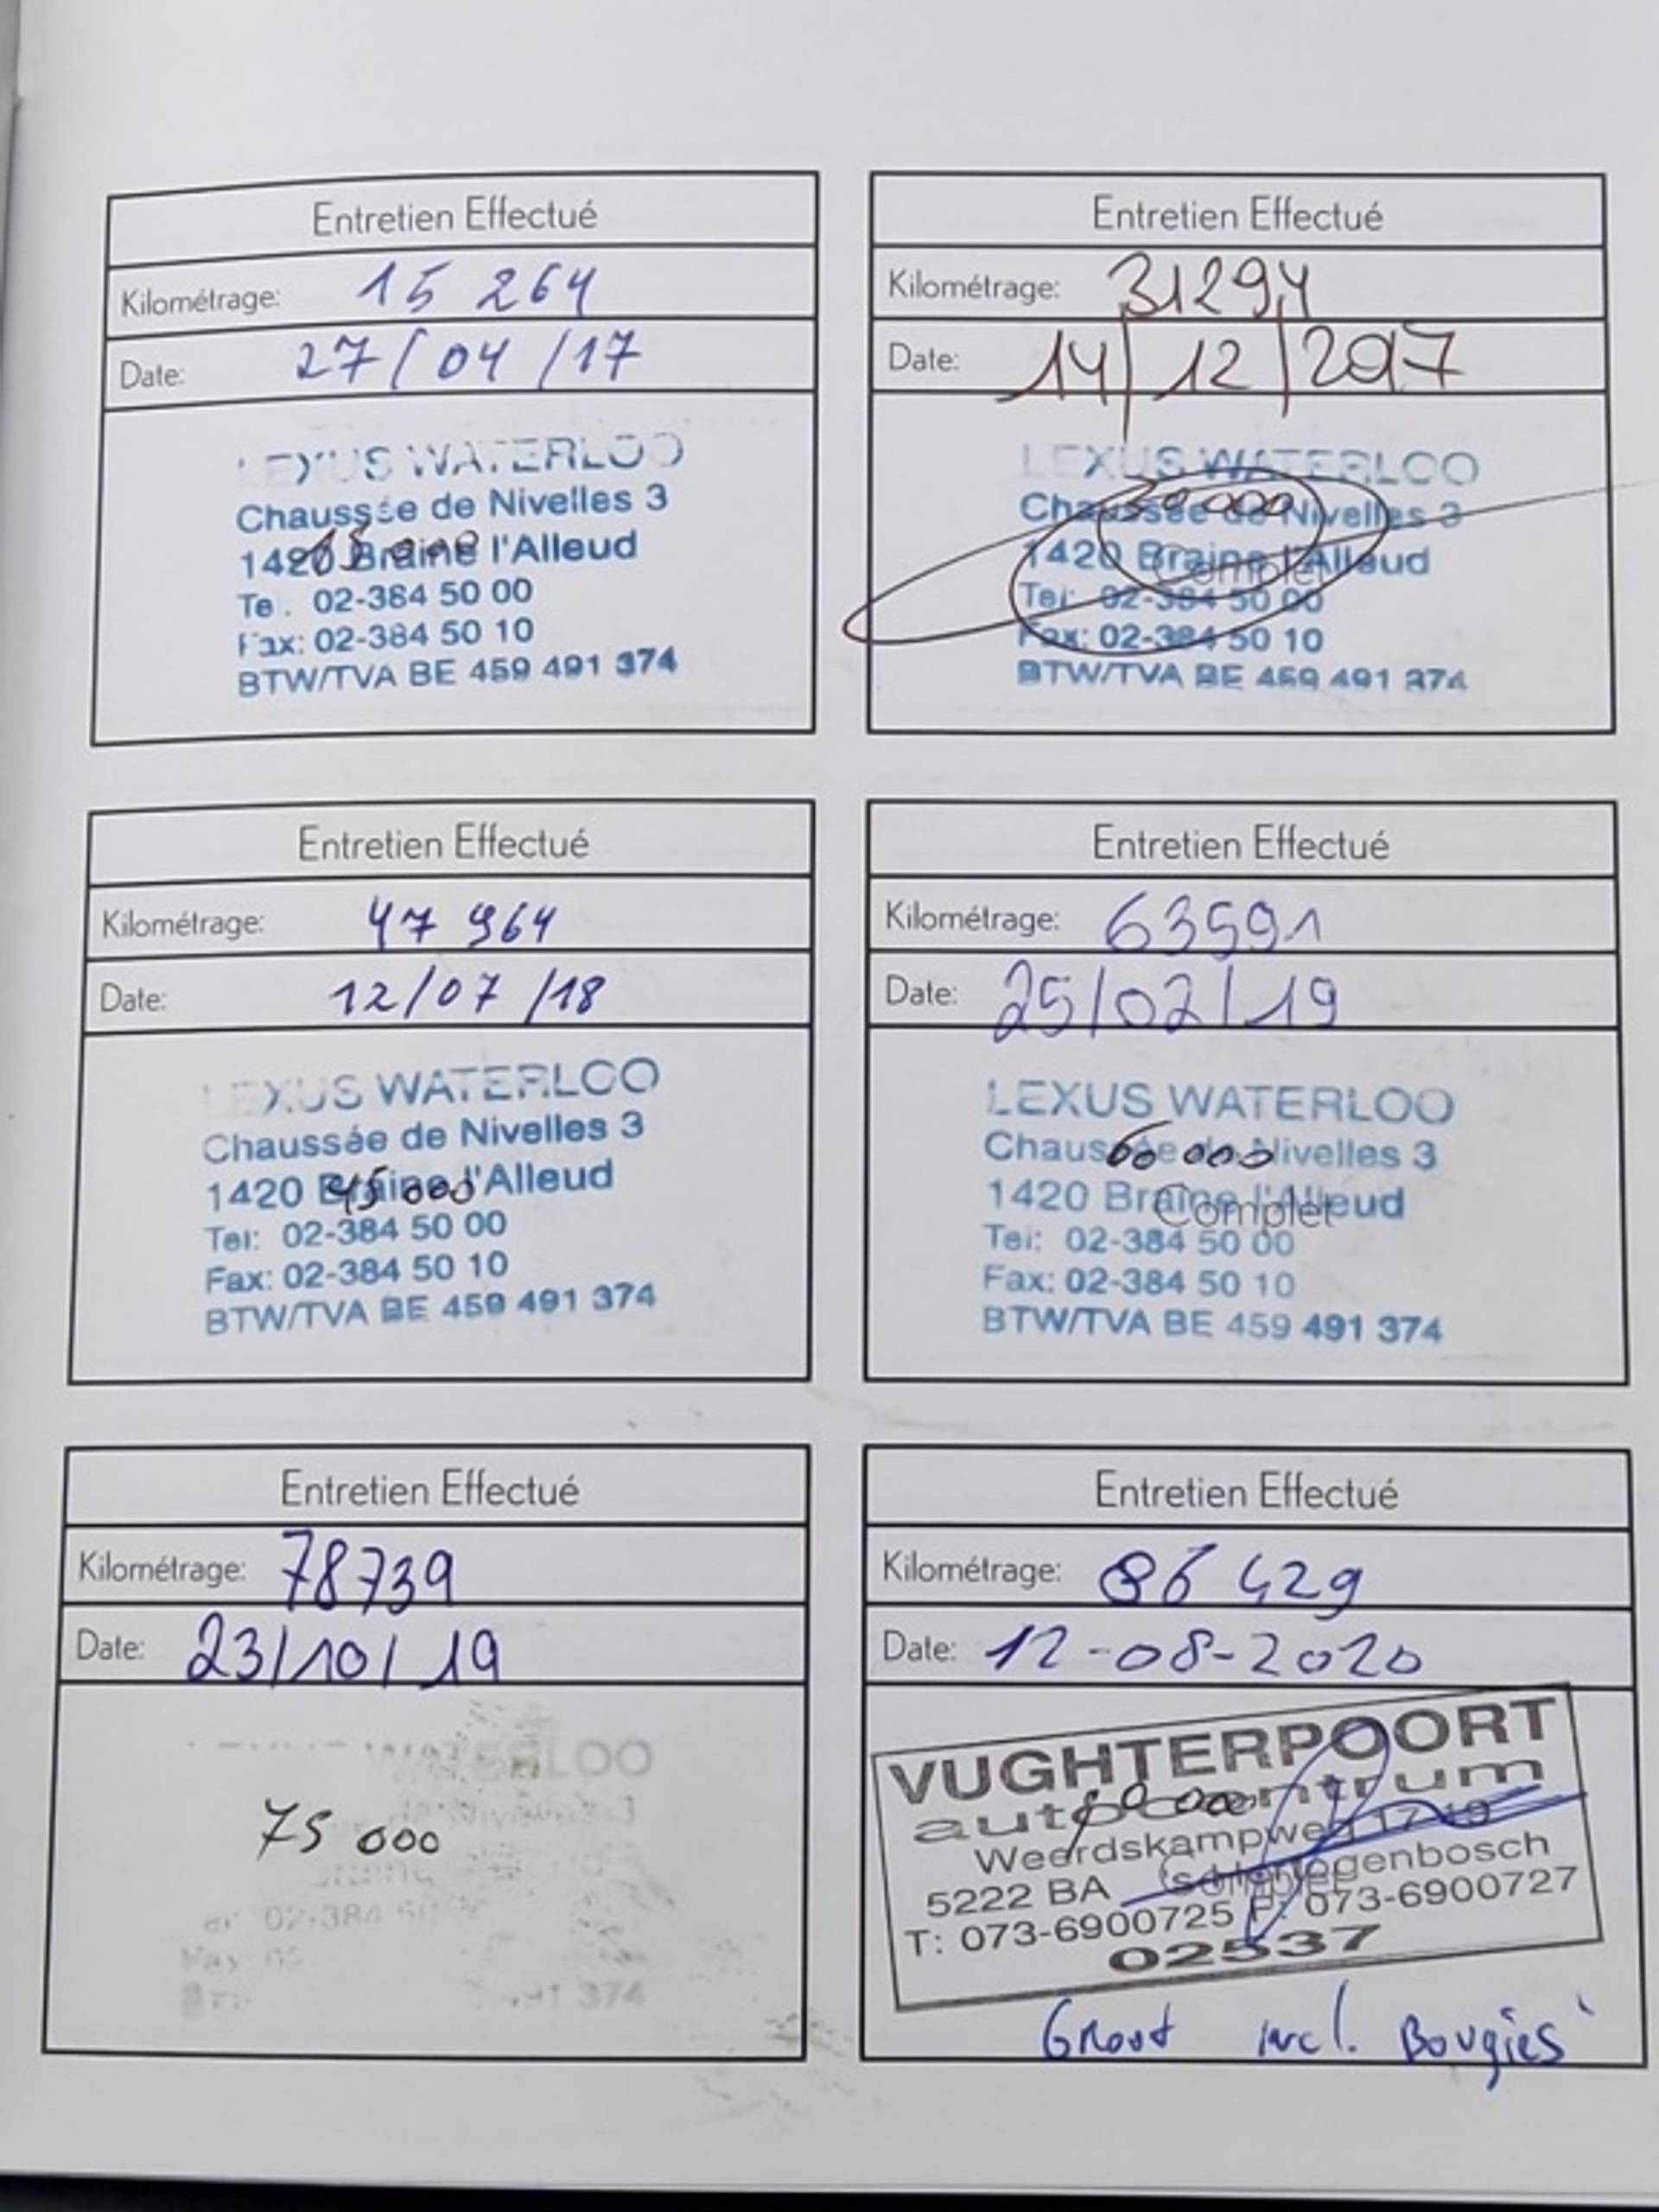 Entretien Effectué
Kilométrage: 15 264
Date: 27/04/17
LEXUS WATERLOO
Chaussée de Nivelles 3
1420 Braine l'Alleud
15 000
Tel. 02-384 50 00
Fax: 02-384 50 10
BTW/TVA BE 459 491 374
Entretien Effectué
Kilométrage: 31294
Date: 14/12/2017
LEXUS WATERLOO
30000
Chaussée de Nivelles 3
1420 Braine l'Alleud
Complet
Tel: 02-384 50 00
Fax: 02-384 50 10
BTW/TVA BE 459 491 374
Entretien Effectué
Kilométrage: 47 964
Date: 12/07/18
LEXUS WATERLOO
Chaussée de Nivelles 3
1420 Braine l'Alleud
45 000
Tel: 02-384 50 00
Fax: 02-384 50 10
BTW/TVA BE 459 491 374
Entretien Effectué
Kilométrage: 63591
Date: 25/02/19
LEXUS WATERLOO
Chaussée de Nivelles 3
60 000
1420 Braine l'Alleud
Complet
Tel: 02-384 50 00
Fax: 02-384 50 10
BTW/TVA BE 459 491 374
Entretien Effectué
Kilométrage: 78739
Date: 23/10/19
WATERLOO
75 000
02-384
374
Entretien Effectué
Kilométrage: 86 429
Date: 12-08-2020
VUGHTERPOORT
autocentrum
90 000
Weerdskampweg 17-19
5222 BA 's-Hertogenbosch
Complet
T: 073-6900725 F: 073-6900727
02537
Groot incl. Bougies